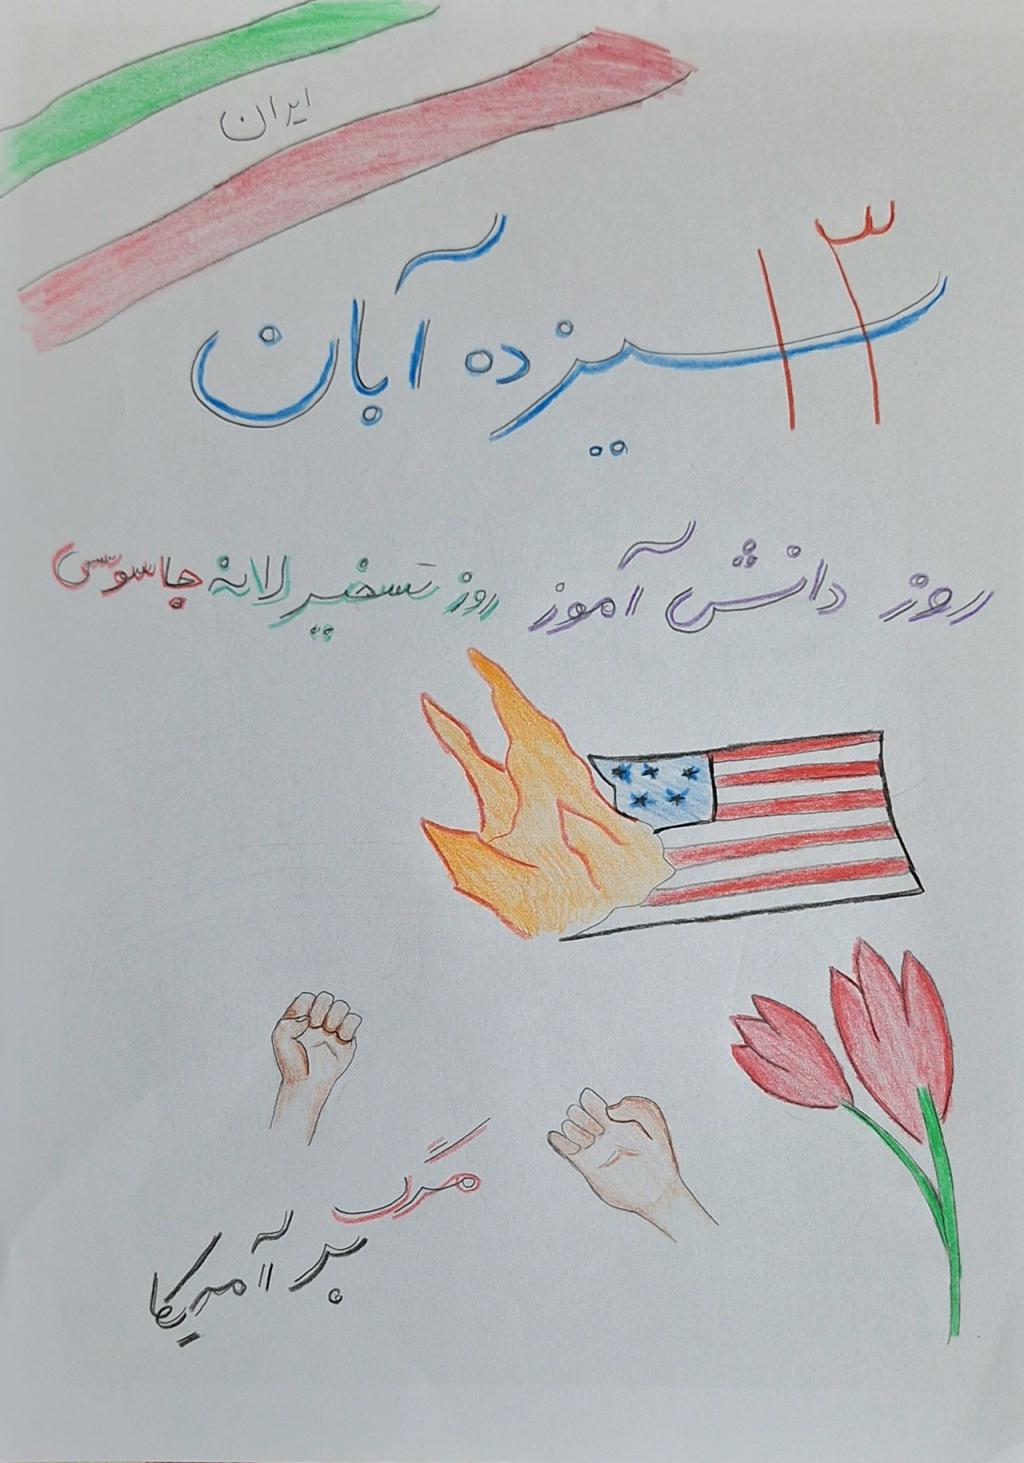 ایران
۱۳
سیزده آبان
روز دانش آموز روز تسخیر لانه جاسوسی
مرگ
بر آمریکا